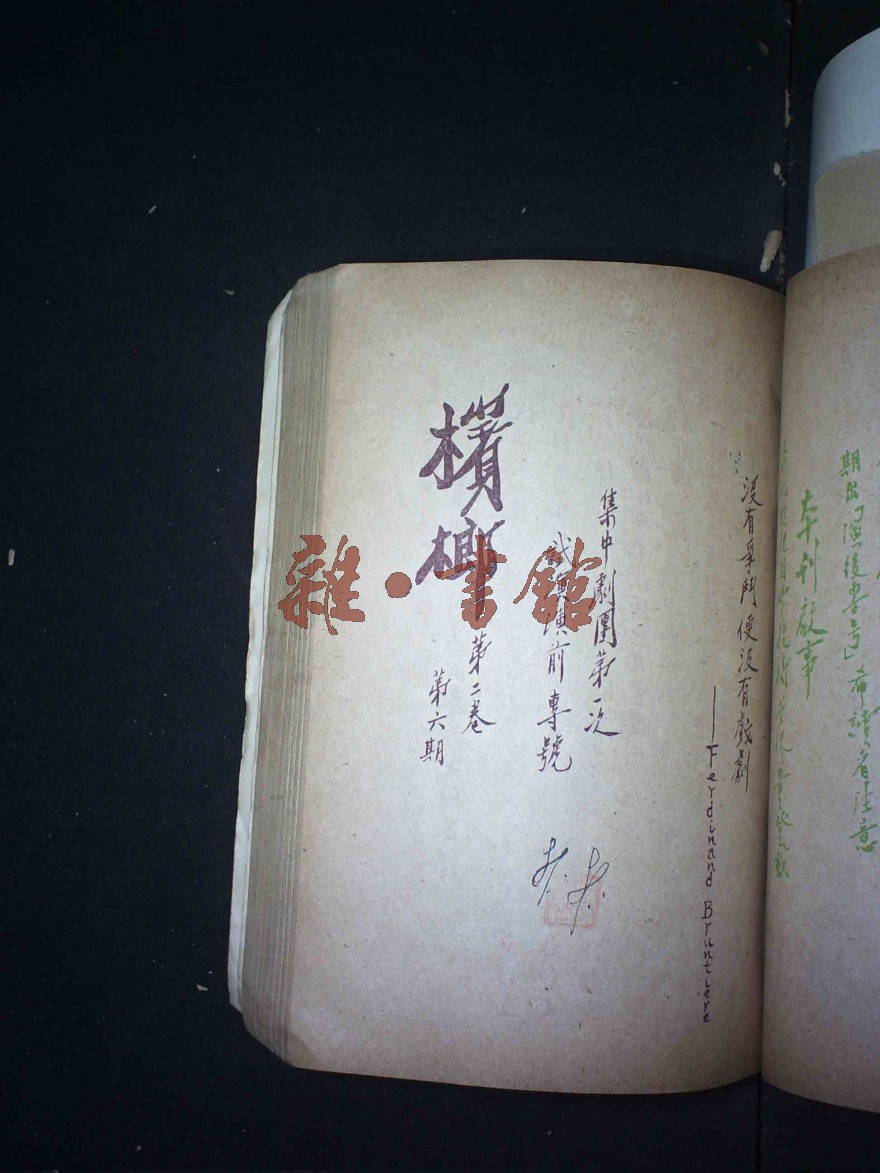 期出「演後專号」希讀者注意
本刊啟事
没有爭鬥便没有戲劇
——Ferdinand Bruntiere
集中劇團第一次
試演演前專號
檳榔
第二卷
第六期
雜·書館